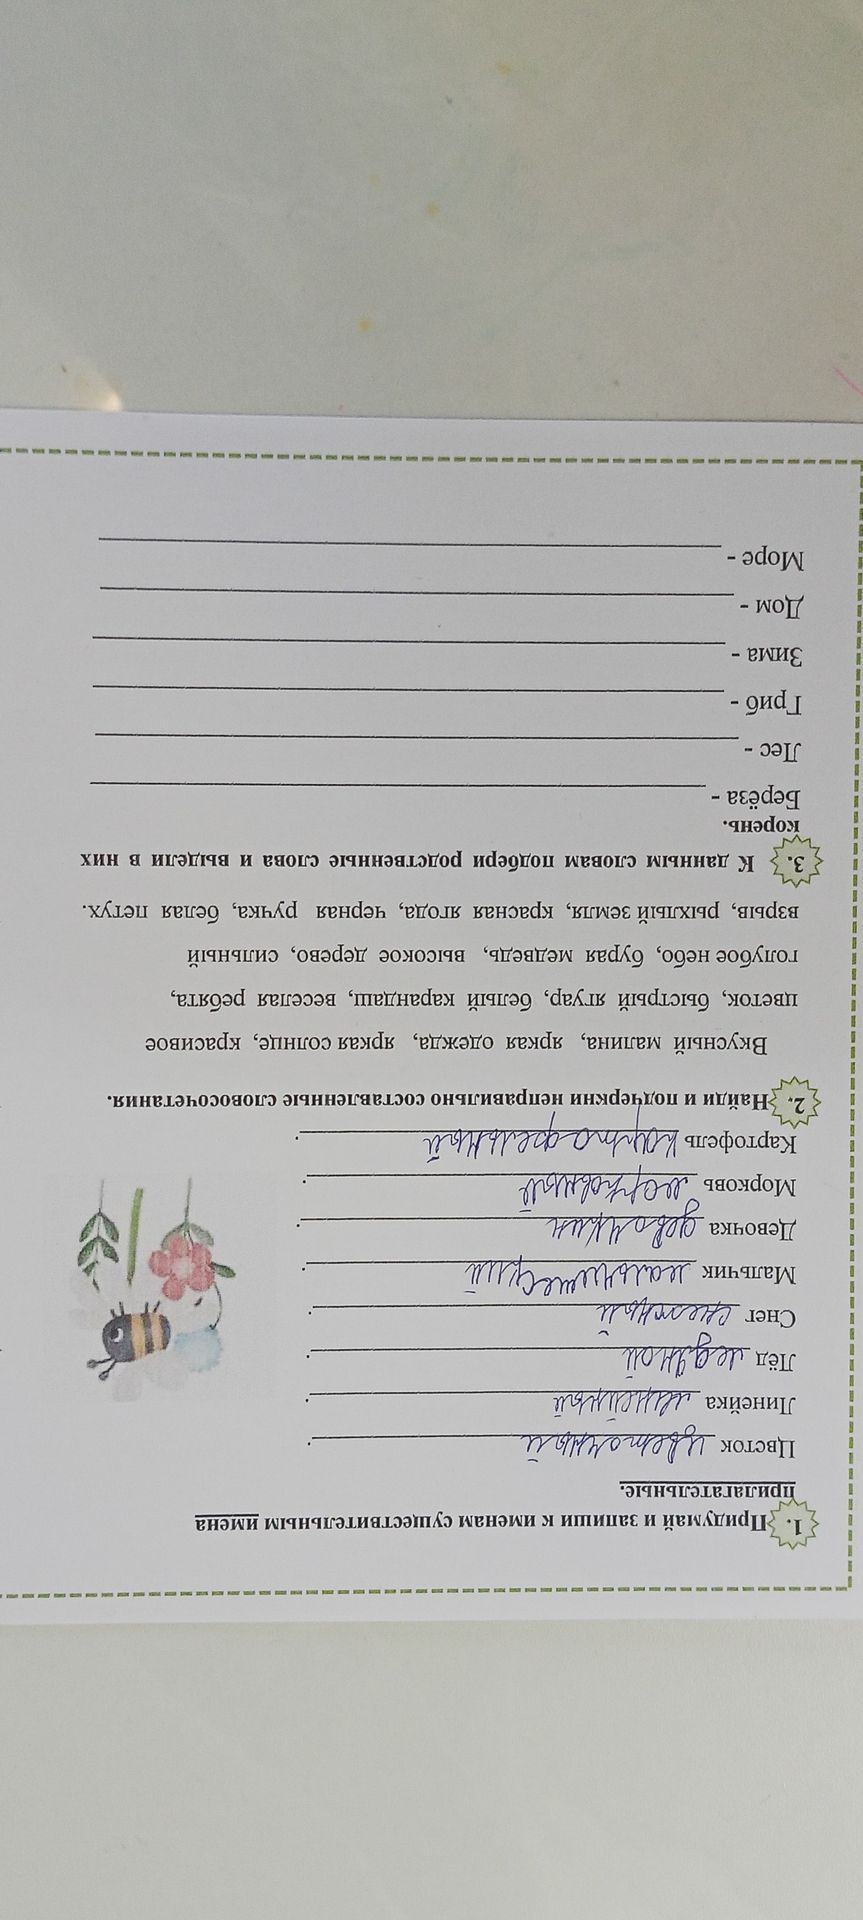 1. Придумай и запиши к именам существительным имена
прилагательные.
Цветок цветочный.
Линейка линейный.
Лёд ледяной.
Снег снежный.
Мальчик мальчишеский.
Девочка девочкин.
Морковь морковный.
Картофель картофельный.
2. Найди и подчеркни неправильно составленные словосочетания.
Вкусный малина, яркая одежда, яркая солнце, красивое
цветок, быстрый ягуар, белый карандаш, веселая ребята,
голубое небо, бурая медведь, высокое дерево, сильный
взрыв, рыхлый земля, красная ягода, черная ручка, белая петух.
3. К данным словам подбери родственные слова и выдели в них
корень.
Берёза -
Лес -
Гриб -
Зима -
Дом -
Море -